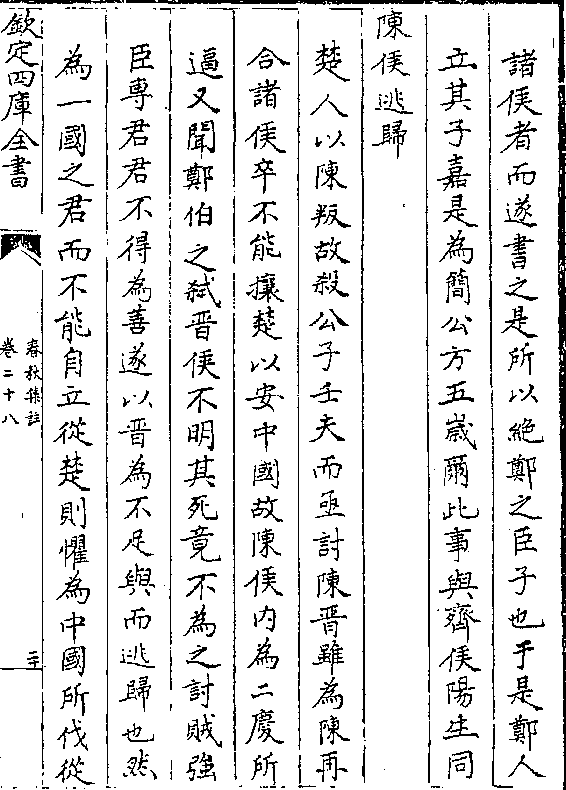 諸侯者而遂書之是所以絶鄭之臣子也于是鄭人
立其子嘉是為簡公方五歲爾此事與齊侯陽生同
陳侯逃歸
楚人以陳叛故殺公子壬夫而亟討陳晉雖為陳再
合諸侯卒不能攘楚以安中國故陳侯内為二慶所
逼又聞鄭伯之弑晉侯不明其死竟不為之討賊強
臣專君君不得為善遂以晉為不足與而逃歸也然
為一國之君而不能自立從楚則懼為中國所伐從
欽定四庫全書
春秋集註
卷二十八
二十